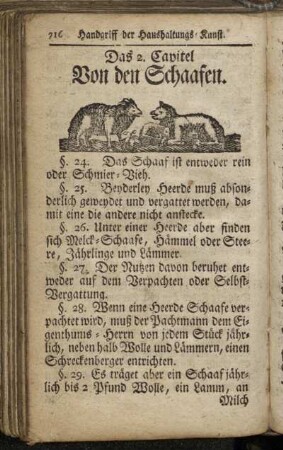 716 Handgriff der Haushaltungs-Kunst.
Das 2. Capitel
Von den Schaafen.
§. 24. Das Schaaf ist entweder rein
oder Schmier-Vieh.
§. 25. Beyderley Heerde muß abson-
derlich geweydet und vergattet werden, da-
mit eine die andere nicht anstecke.
§. 26. Unter einer Heerde aber finden
sich Melck-Schaafe, Hämmel oder Stee-
re, Jährlinge und Lämmer.
§. 27. Der Nutzen davon beruhet ent-
weder auf dem Verpachten oder Selbst-
Vergattung.
§. 28. Wenn eine Heerde Schaafe ver-
pachtet wird, muß der Pachtmann dem Ei-
genthums-Herrn von jedem Stück jähr-
lich, neben halb Wolle und Lämmern, einen
Schreckenberger entrichten.
§. 29. Es träget aber ein Schaaf jähr-
lich bis 2 Pfund Wolle, ein Lamm, an
Milch